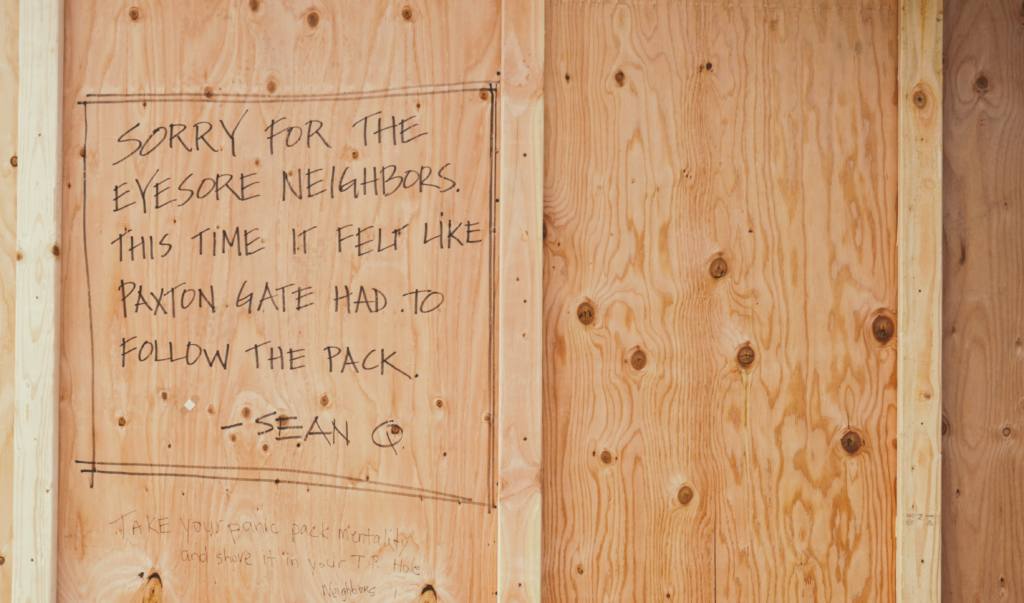 SORRY FOR THE
EYESORE NEIGHBORS.
THIS TIME IT FELT LIKE
PAXTON GATE HAD TO
FOLLOW THE PACK.
- SEAN Q
TAKE your panic pack mentality
and shove it in your T.P. Hole
Neighbors